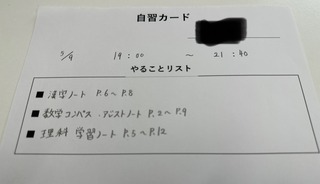 自習カード
5/9 19:00 ～ 21:40
やることリスト
■ 漢字ノート P.6～P.8
■ 数学コンパス・アシストノート P.2～P.9
■ 理科 学習ノート P.5～P.12